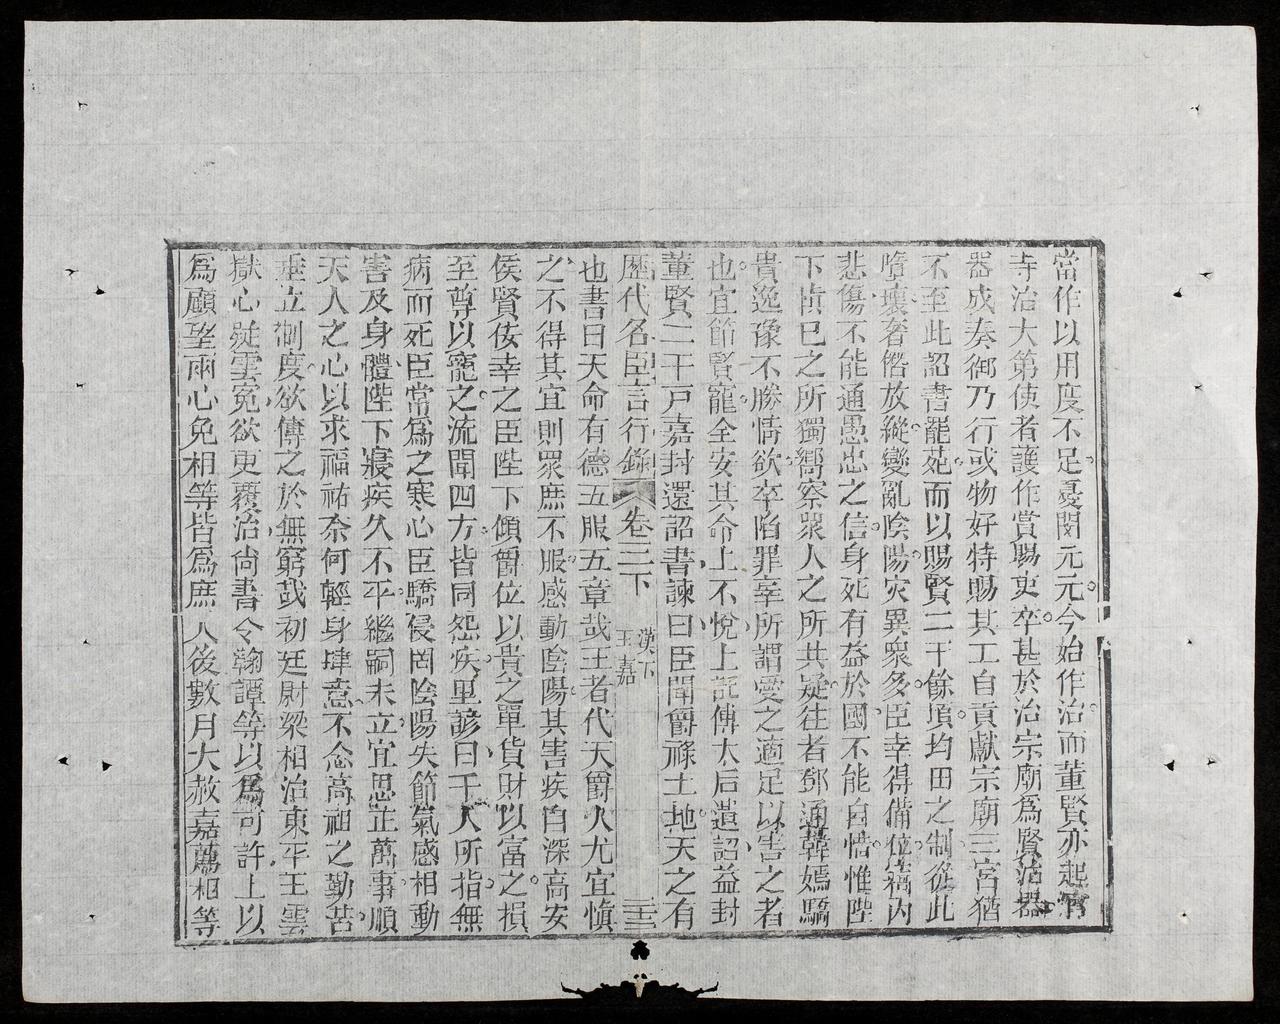 當作以用度不足憂閔元元今始作治而董賢亦起官
寺治大第使者護作賞賜吏卒甚於治宗廟爲賢治器
器成奏御乃行或物好特賜其工自貢獻宗廟三宮猶
不至此詔書罷苑而以賜賢二千餘頃均田之制從此
墮壞奢僭放縱變亂陰陽灾異衆多臣幸得備位竊内
悲傷不能通愚忠之信身死有益於國不能自惜惟陛
下慎巳之所獨嚮察衆人之所共疑往者鄧通韓嫣驕
貴逸豫不勝情欲卒陷罪辜所謂愛之適足以害之者
也宜節賢寵全安其命上不悅上託傅太后遺詔益封
董賢二千戸嘉封還詔書諫曰臣聞爵祿土地天之有
歷代名臣言行錄 卷二下 漢下 王嘉 三三
也書曰天命有德五服五章哉王者代天爵人尤宜慎
之不得其宜則眾庶不服感動陰陽其害疾自深高安
侯賢佞幸之臣陛下傾爵位以貴之單貨財以富之損
至尊以寵之流聞四方皆同怨疾里諺曰千人所指無
病而死臣常爲之寒心臣驕侵罔陰陽失節氣感相動
害及身體陛下寢疾久不平繼嗣未立宜思正萬事順
天人之心以求福祐奈何輕身肆意不念高祖之勤苦
垂立制度欲傳之於無窮哉初廷尉梁相治東平王雲
獄心疑雲冤欲更覆治尙書令鞫譚等以爲可許上以
爲顧望兩心免相等皆爲庶人後數月大赦嘉薦相等